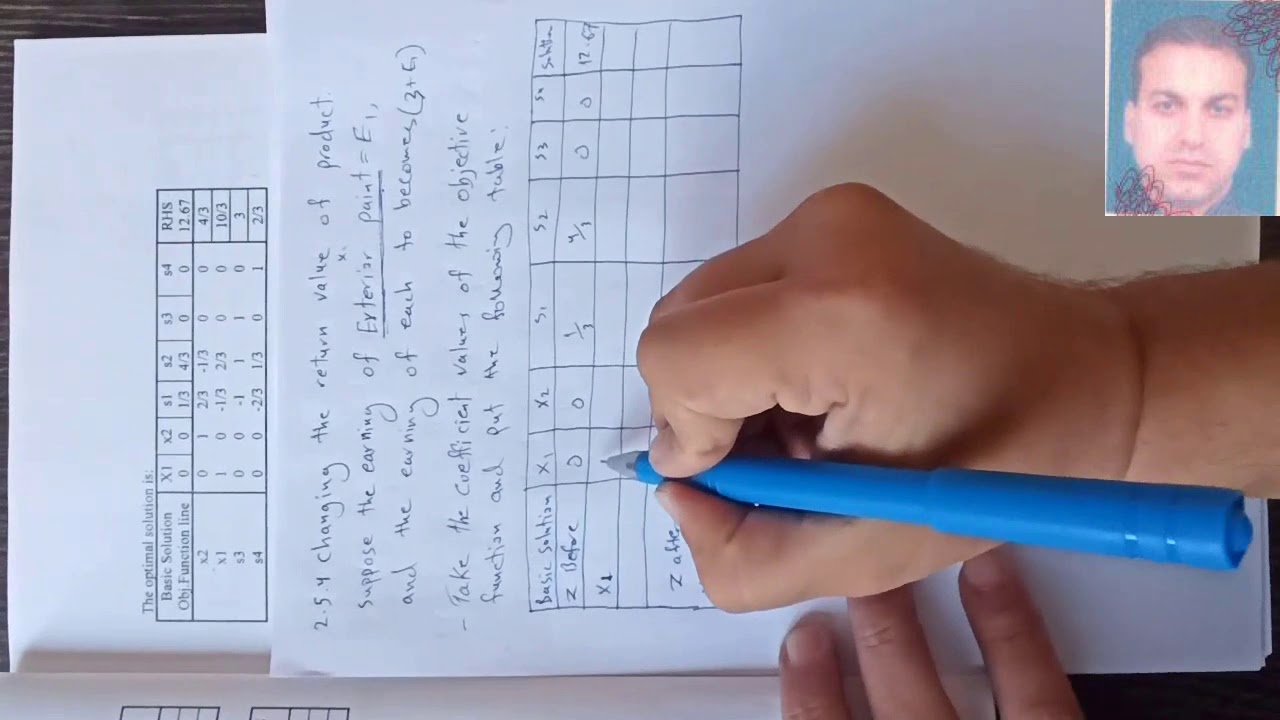 The optimal solution is:
Basic Solution X1 x2 s1 s2 s3 s4 RHS
Obj.Function line 0 0 1/3 4/3 0 0 12.67
x2 0 1 2/3 -1/3 0 0 4/3
x1 1 0 -1/3 2/3 0 0 10/3
s3 0 0 -1 1 1 0 3
s4 0 0 -2/3 1/3 0 1 2/3
2.5.4 changing the return value of product.
suppose the earning of Exterior paint = E1,
x1
and the earning of each to becomes (3+E1)
- Take the coefficient values of the objective
function and put the following table:
Basic solution X1 X2 S1 S2 S3 S4 Solution
Z Before 0 0 1/3 4/3 0 0 12.67
X1
Z afte